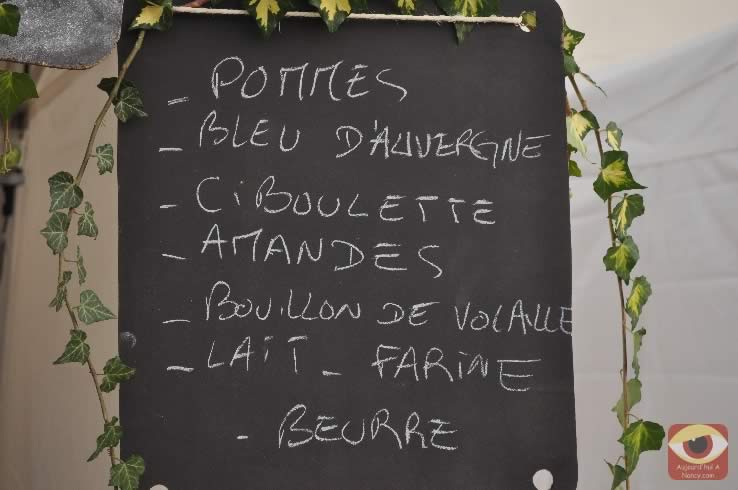 - POMMES
- BLEU D'AUVERGNE
- CiBOULETTE
- AMANDES
- BOUiLLON DE VOLAILLE
- LAiT - FARiNE
- BEURRE
Aujourd'hui A
Nancy.com